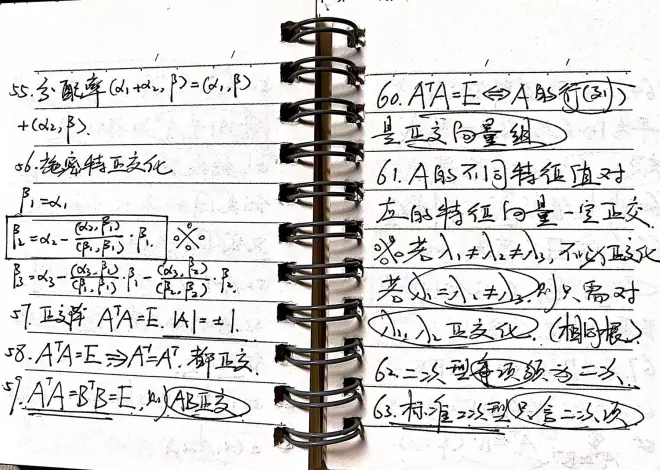 55.分配率(α₁+α₂,β)=(α₁,β)
+(α₂,β).
56.施密特正交化
β₁=α₁
β₂=α₂-(α₂,β₁)/(β₁,β₁)·β₁. ※
β₃=α₃-(α₃,β₁)/(β₁,β₁)·β₁-(α₃,β₂)/(β₂,β₂)·β₂.
57.正交阵 AᵀA=E. |A|=±1.
58.AᵀA=E⇒A⁻¹=Aᵀ.都正交.
59.AᵀA=BᵀB=E,则AB正交
60.AᵀA=E⇔A的行(列)
是正交向量组
61.A的不同特征值对
应的特征向量一定正交
※若λ₁≠λ₂≠λ₃,不必正交化
若λ₁=λ₂≠λ₃.则只需对
λ₁,λ₂正交化.(相同根)
62.二次型每项须为二次.
63.标准二次型只含二次项